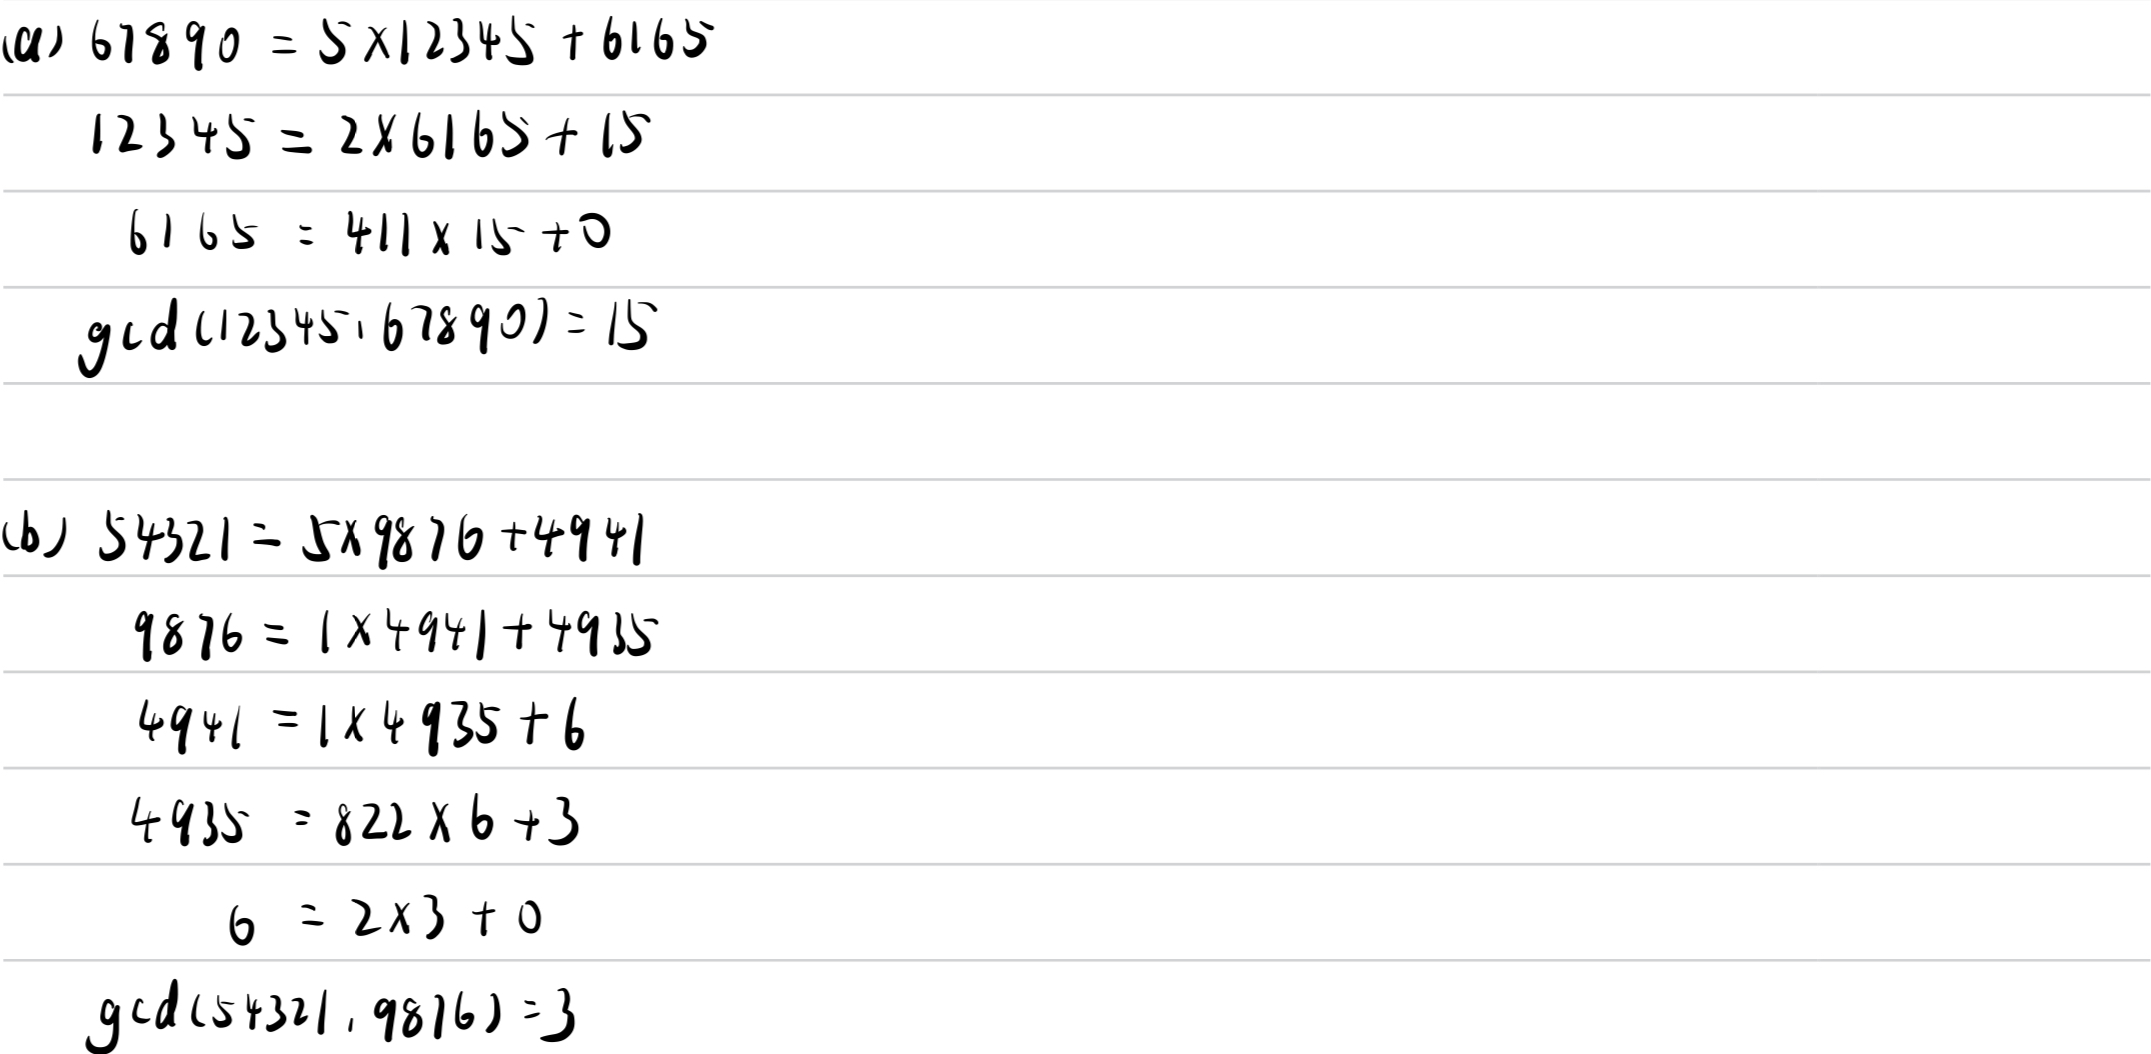 (a) 67890 = 5×12345 + 6165
12345 = 2×6165 + 15
6165 = 411 × 15 + 0
gcd(12345, 67890) = 15
(b) 54321 = 5×9876 + 4941
9876 = 1×4941 + 4935
4941 = 1×4935 + 6
4935 = 822×6 + 3
6 = 2×3 + 0
gcd(54321, 9876) = 3